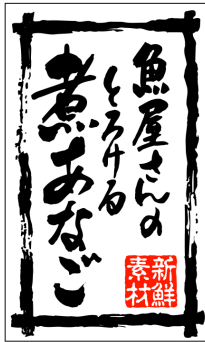 魚屋さんの
とろける
煮あなご
新鮮
素材